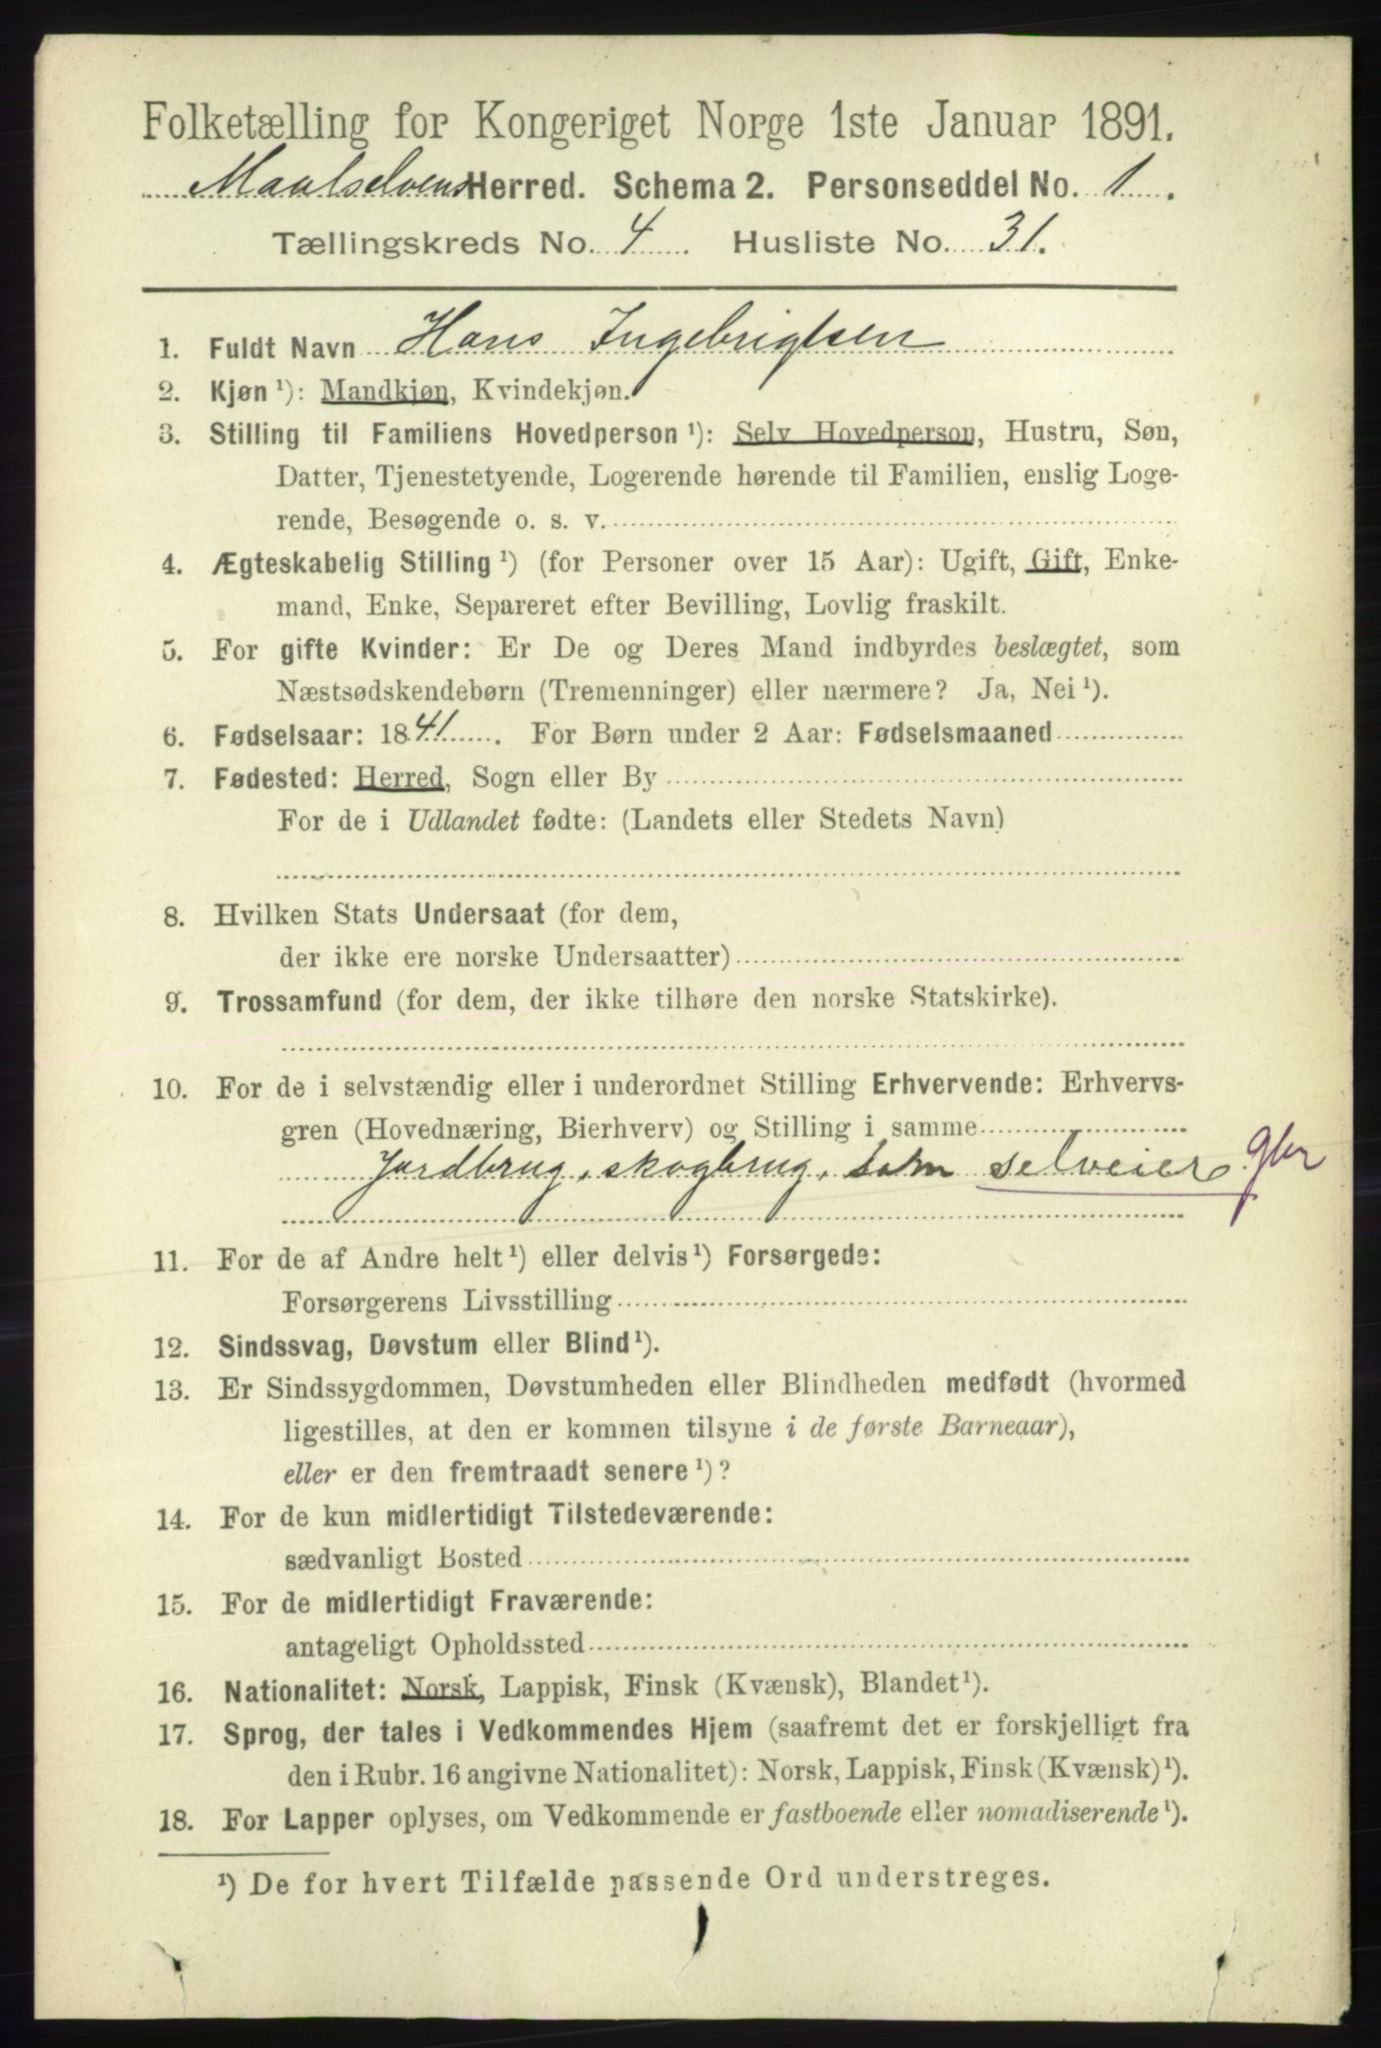 Folketælling for Kongeriget Norge 1ste Januar 1891.
Maalselvens Herred. Schema 2. Personseddel No. 1.
Tællingskreds No. 4 Husliste No. 31.
1. Fuldt Navn Hans Ingebrigtsen
2. Kjøn ¹): Mandkjøn, Kvindekjøn.
3. Stilling til Familiens Hovedperson ¹): Selv Hovedperson, Hustru, Søn,
Datter, Tjenestetyende, Logerende hørende til Familien, enslig Loge-
rende, Besøgende o. s. v.
4. Ægteskabelig Stilling ¹) (for Personer over 15 Aar): Ugift, Gift, Enke-
mand, Enke, Separeret efter Bevilling, Lovlig fraskilt.
5. For gifte Kvinder: Er De og Deres Mand indbyrdes beslægtet, som
Næstsødskendebørn (Tremenninger) eller nærmere? Ja, Nei ¹).
6. Fødselsaar: 1841. For Børn under 2 Aar: Fødselsmaaned
7. Fødested: Herred, Sogn eller By
For de i Udlandet fødte: (Landets eller Stedets Navn)
8. Hvilken Stats Undersaat (for dem,
der ikke ere norske Undersaatter)
9. Trossamfund (for dem, der ikke tilhøre den norske Statskirke).
10. For de i selvstændig eller i underordnet Stilling Erhvervende: Erhvervs-
gren (Hovednæring, Bierhverv) og Stilling i samme
Jordbrug, skogbrug, som selveier gbr
11. For de af Andre helt ¹) eller delvis ¹) Forsørgede:
Forsørgerens Livsstilling
12. Sindssvag, Døvstum eller Blind ¹).
13. Er Sindssygdommen, Døvstumheden eller Blindheden medfødt (hvormed
ligestilles, at den er kommen tilsyne i de første Barneaar),
eller er den fremtraadt senere ¹)?
14. For de kun midlertidigt Tilstedeværende:
sædvanligt Bosted
15. For de midlertidigt Fraværende:
antageligt Opholdssted
16. Nationalitet: Norsk, Lappisk, Finsk (Kvænsk), Blandet ¹).
17. Sprog, der tales i Vedkommendes Hjem (saafremt det er forskjelligt fra
den i Rubr. 16 angivne Nationalitet): Norsk, Lappisk, Finsk (Kvænsk) ¹).
18. For Lapper oplyses, om Vedkommende er fastboende eller nomadiserende ¹).
¹) De for hvert Tilfælde passende Ord understreges.